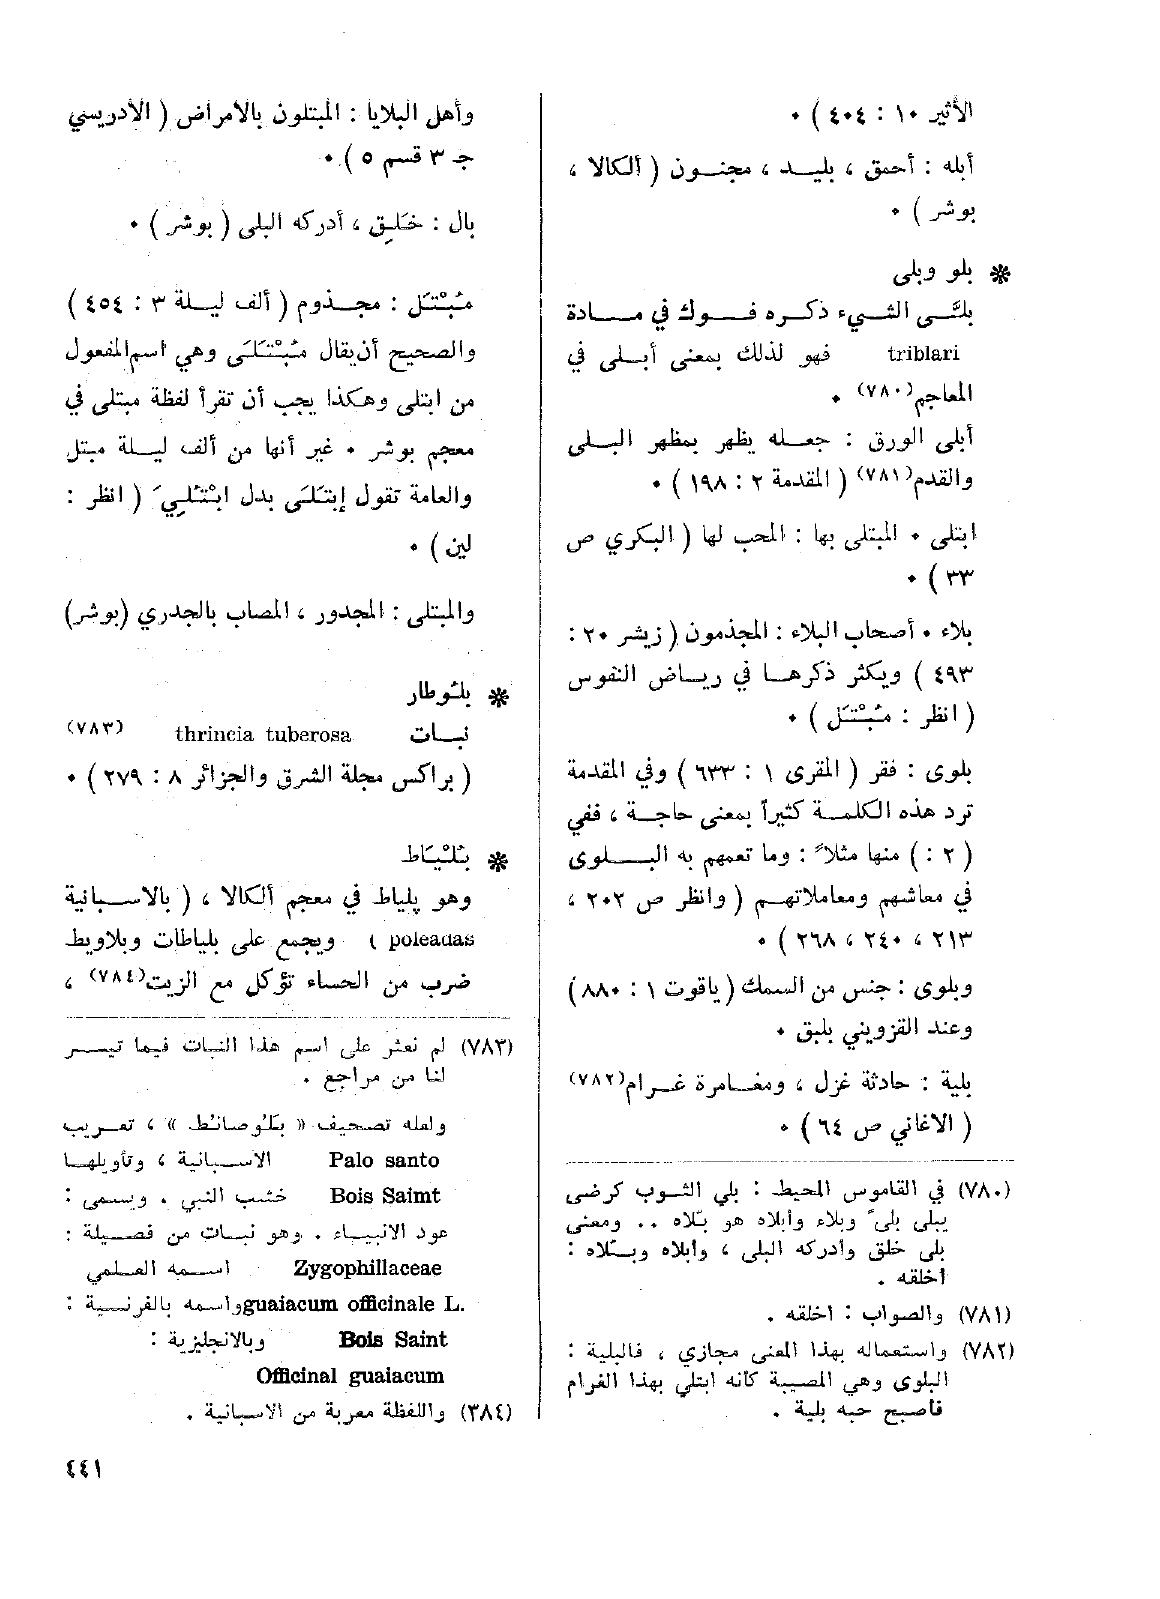 الأثير ١٠ : ٤٠٤ ) ٠
أبله : أحمق ، بليد ، مجنون ( ألكالا ،
بوشر ) ٠
❋ بلو وبلى
بلَّى الشيء ذكره فوك في مادة
triblari فهو لذلك بمعنى أبلى في
المعاجم(٧٨٠) ٠
أبلى الورق : جعله يظهر بمظهر البلى
والقدم(٧٨١) ( المقدمة ٢ : ١٩٨ ) ٠
ابتلى ٠ المبتلى بها : المحب لها ( البكري ص
٣٣ ) ٠
بلاء ٠ أصحاب البلاء : المجذمون ( زيشر ٢٠ :
٤٩٣ ) ويكثر ذكرها في رياض النفوس
( انظر : مُبْتَل ) ٠
بلوى : فقر ( المقرى ١ : ٦٣٣ ) وفي المقدمة
ترد هذه الكلمة كثيراً بمعنى حاجة ، ففي
( ٢ : ) منها مثلاً : وما تعمهم به البلوى
في معاشهم ومعاملاتهم ( وانظر ص ٢٠٢ ،
٢١٣ ، ٢٤٠ ، ٢٦٨ ) ٠
وبلوى : جنس من السمك ( ياقوت ١ : ٨٨٠ )
وعند القزويني بلبق ٠
بلية : حادثة غزل ، ومغامرة غرام(٧٨٢)
( الاغاني ص ٦٤ ) ٠
(٧٨٠) في القاموس المحيط : بلي الثوب كرضى
يبلى بلىً وبلاء وأبلاه هو بلّاه .. ومعنى
بلى خلق وأدركه البلى ، وأبلاه وبلّاه :
أخلقه .
(٧٨١) والصواب : اخلقه .
(٧٨٢) واستعماله بهذا المعنى مجازي ، فالبلية :
البلوى وهي المصيبة كأنه ابتلي بهذا الغرام
فأصبح حبه بلية .
وأهل البلايا : المبتلون بالأمراض ( الأدريسي
جـ ٣ قسم ٥ ) ٠
بال : خَلِق ، أدركه البلى ( بوشر ) ٠
مُبْتَل : مجذوم ( ألف ليلة ٣ : ٤٥٤ )
والصحيح أن يقال مُبْتَلَى وهي اسم المفعول
من ابتلى وهكذا يجب أن تقرأ لفظة مبتلى في
معجم بوشر ٠ غير أنها من ألف ليلة مبتل
والعامة تقول إبتَلَى بدل ابْتُلِيَ ( انظر :
لين ) ٠
والمبتلى : المجدور ، المصاب بالجدري (بوشر)
❋ بلُوطار
نبات thrincia tuberosa (٧٨٣)
( براكس مجلة الشرق والجزائر ٨ : ٢٧٩ ) ٠
❋ بُلْيَاط
وهو پلياط في معجم ألكالا ، ( بالاسبانية
poleadas ) ويجمع على بلياطات وبلاويط
ضرب من الحساء تؤكل مع الزيت(٧٨٤) ،
(٧٨٣) لم نعثر على اسم هذا النبات فيما تيسر
لنا من مراجع .
ولعله تصحيف « بلُوصانُط » ، تعريب
Palo santo الاسبانية ، وتأويلها
Bois Saimt خشب النبي . ويسمى :
عود الانبياء . وهو نبات من فصيلة :
Zygophillaceae اسمه العلمي
guaiacum officinale L. واسمه بالفرنسية :
Bois Saint وبالانجليزية :
Officinal guaiacum
(٣٨٤) واللفظة معربة من الاسبانية .
٤٤١